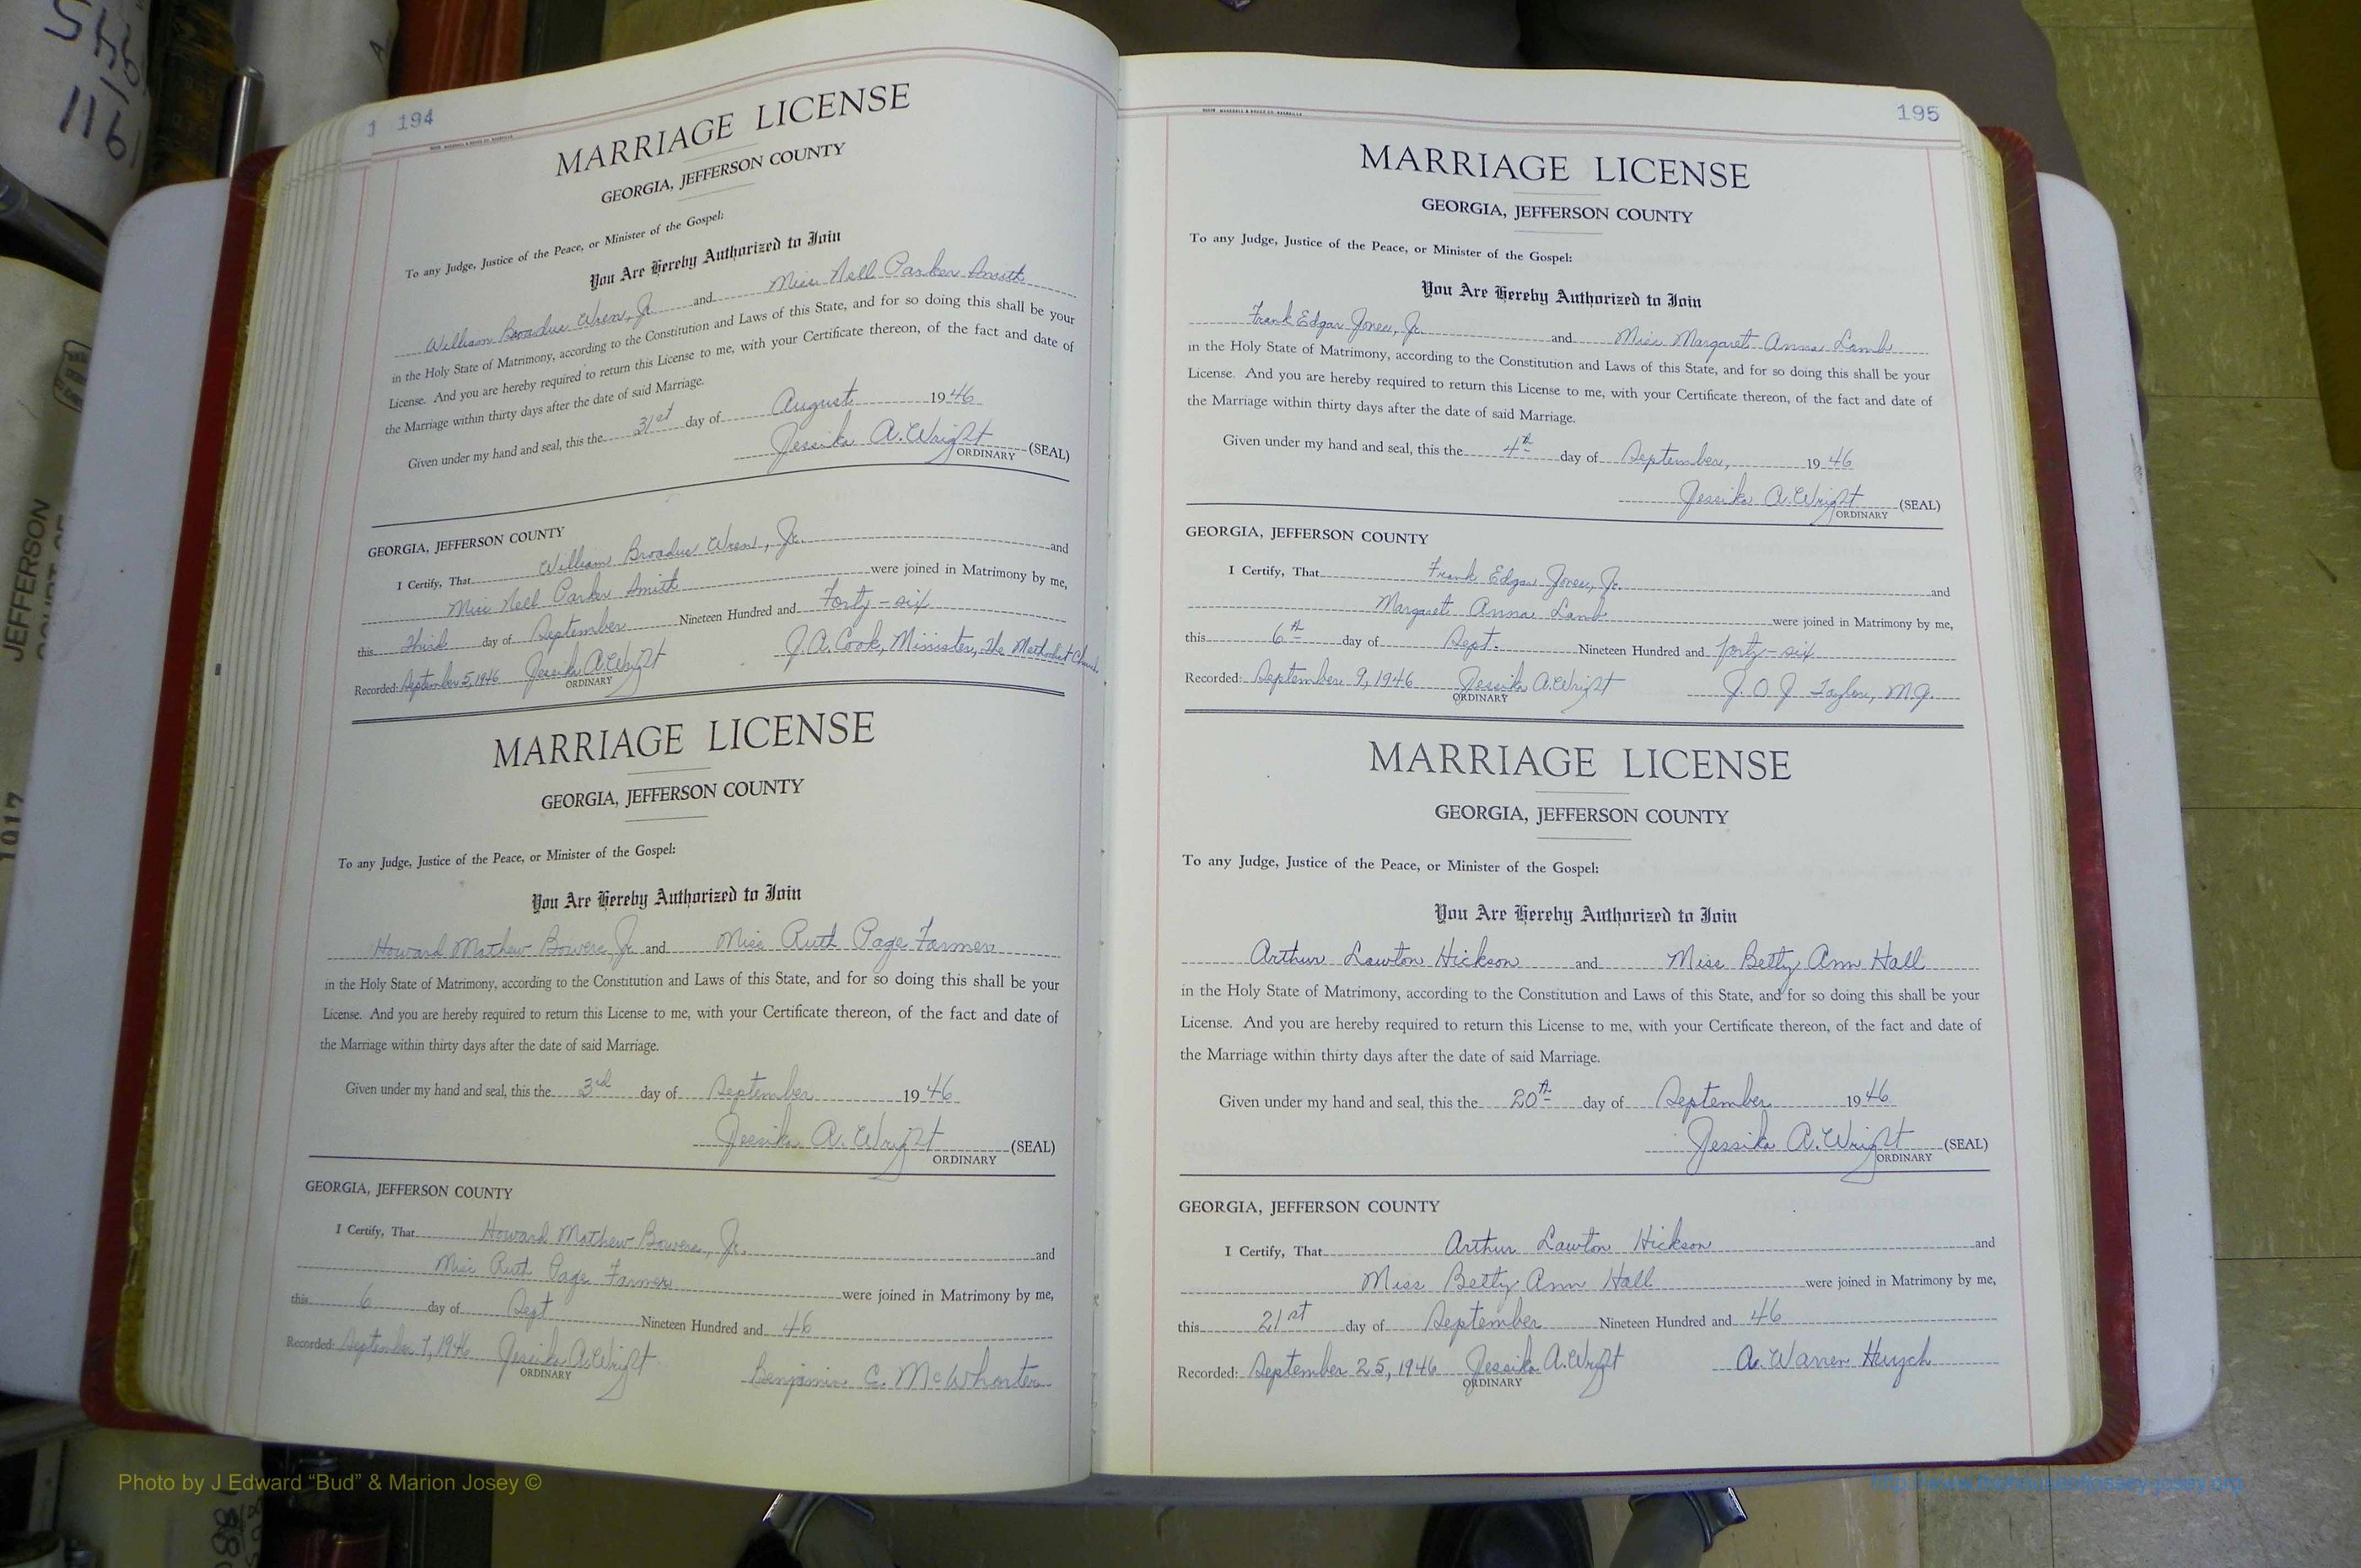 1 194
MARRIAGE LICENSE
GEORGIA, JEFFERSON COUNTY
To any Judge, Justice of the Peace, or Minister of the Gospel:
You Are Hereby Authorized to Join
William Broadus Wren, Jr. and Miss Nell Parker Smith
in the Holy State of Matrimony, according to the Constitution and Laws of this State, and for so doing this shall be your
License. And you are hereby required to return this License to me, with your Certificate thereon, of the fact and date of
the Marriage within thirty days after the date of said Marriage.
Given under my hand and seal, this the 31st day of August 1946
Jessika A. Wright (SEAL)
ORDINARY
GEORGIA, JEFFERSON COUNTY
I Certify, That William Broadus Wren, Jr. and
Miss Nell Parker Smith were joined in Matrimony by me,
this Third day of September Nineteen Hundred and Forty-six
Recorded: September 5, 1946 Jessika A. Wright J. A. Cook, Minister, The Methodist Church
ORDINARY
MARRIAGE LICENSE
GEORGIA, JEFFERSON COUNTY
To any Judge, Justice of the Peace, or Minister of the Gospel:
You Are Hereby Authorized to Join
Howard Mathew Bowers, Jr. and Miss Ruth Page Farmer
in the Holy State of Matrimony, according to the Constitution and Laws of this State, and for so doing this shall be your
License. And you are hereby required to return this License to me, with your Certificate thereon, of the fact and date of
the Marriage within thirty days after the date of said Marriage.
Given under my hand and seal, this the 3rd day of September 1946
Jessika A. Wright (SEAL)
ORDINARY
GEORGIA, JEFFERSON COUNTY
I Certify, That Howard Mathew Bowers, Jr. and
Miss Ruth Page Farmer were joined in Matrimony by me,
this 6 day of Sept Nineteen Hundred and 46
Recorded: September 7, 1946 Jessika A. Wright Benjamin C. McWhorter
ORDINARY
195
MARRIAGE LICENSE
GEORGIA, JEFFERSON COUNTY
To any Judge, Justice of the Peace, or Minister of the Gospel:
You Are Hereby Authorized to Join
Frank Edgar Jones, Jr. and Miss Margaret Anna Lamb
in the Holy State of Matrimony, according to the Constitution and Laws of this State, and for so doing this shall be your
License. And you are hereby required to return this License to me, with your Certificate thereon, of the fact and date of
the Marriage within thirty days after the date of said Marriage.
Given under my hand and seal, this the 4th day of September, 1946
Jessika A. Wright (SEAL)
ORDINARY
GEORGIA, JEFFERSON COUNTY
I Certify, That Frank Edgar Jones, Jr. and
Margaret Anna Lamb were joined in Matrimony by me,
this 6th day of Sept. Nineteen Hundred and forty-six
Recorded: September 9, 1946 Jessika A. Wright J. O. J. Taylor, M.G.
ORDINARY
MARRIAGE LICENSE
GEORGIA, JEFFERSON COUNTY
To any Judge, Justice of the Peace, or Minister of the Gospel:
You Are Hereby Authorized to Join
Arthur Lawton Hickson and Miss Betty Ann Hall
in the Holy State of Matrimony, according to the Constitution and Laws of this State, and for so doing this shall be your
License. And you are hereby required to return this License to me, with your Certificate thereon, of the fact and date of
the Marriage within thirty days after the date of said Marriage.
Given under my hand and seal, this the 20th day of September 1946
Jessika A. Wright (SEAL)
ORDINARY
GEORGIA, JEFFERSON COUNTY
I Certify, That Arthur Lawton Hickson and
Miss Betty Ann Hall were joined in Matrimony by me,
this 21st day of September Nineteen Hundred and 46
Recorded: September 25, 1946 Jessika A. Wright A. Warren Huyck
ORDINARY
JEFFERSON
COURT OF
1917
116
Photo by J Edward “Bud” & Marion Josey ©